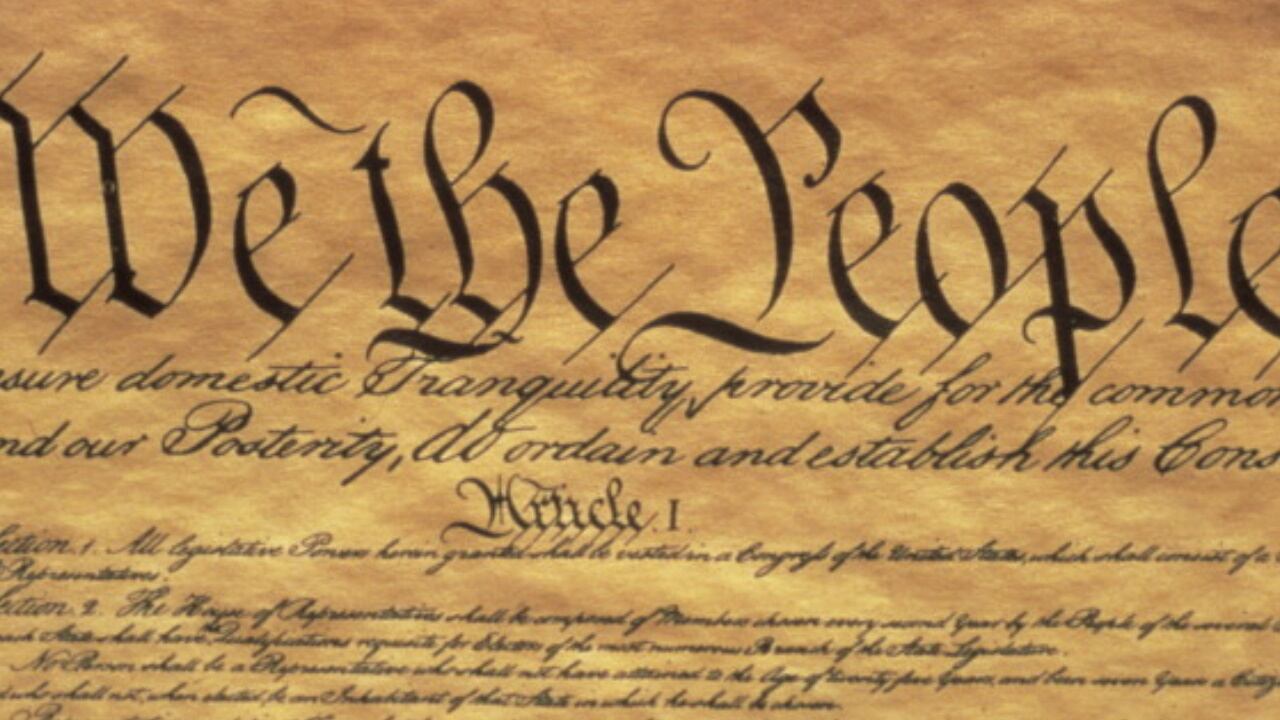 We the People
nsure domestic Tranquility, provide for the common
nd our Posterity, do ordain and establish this Cons
Article. I.
Section. 1. All legislative Powers herein granted shall be vested in a Congress of the United States, which shall consist of a
Representatives.
Section. 2. The House of Representatives shall be composed of Members chosen every second Year by the People of the several
each State shall have Qualifications requisite for Electors of the most numerous Branch of the State Legislature.
No Person shall be a Representative who shall not have attained to the Age of twenty five Years, and been seven Years a Citize
d who shall not, when elected, be an Inhabitant of that State in which he shall be chosen.